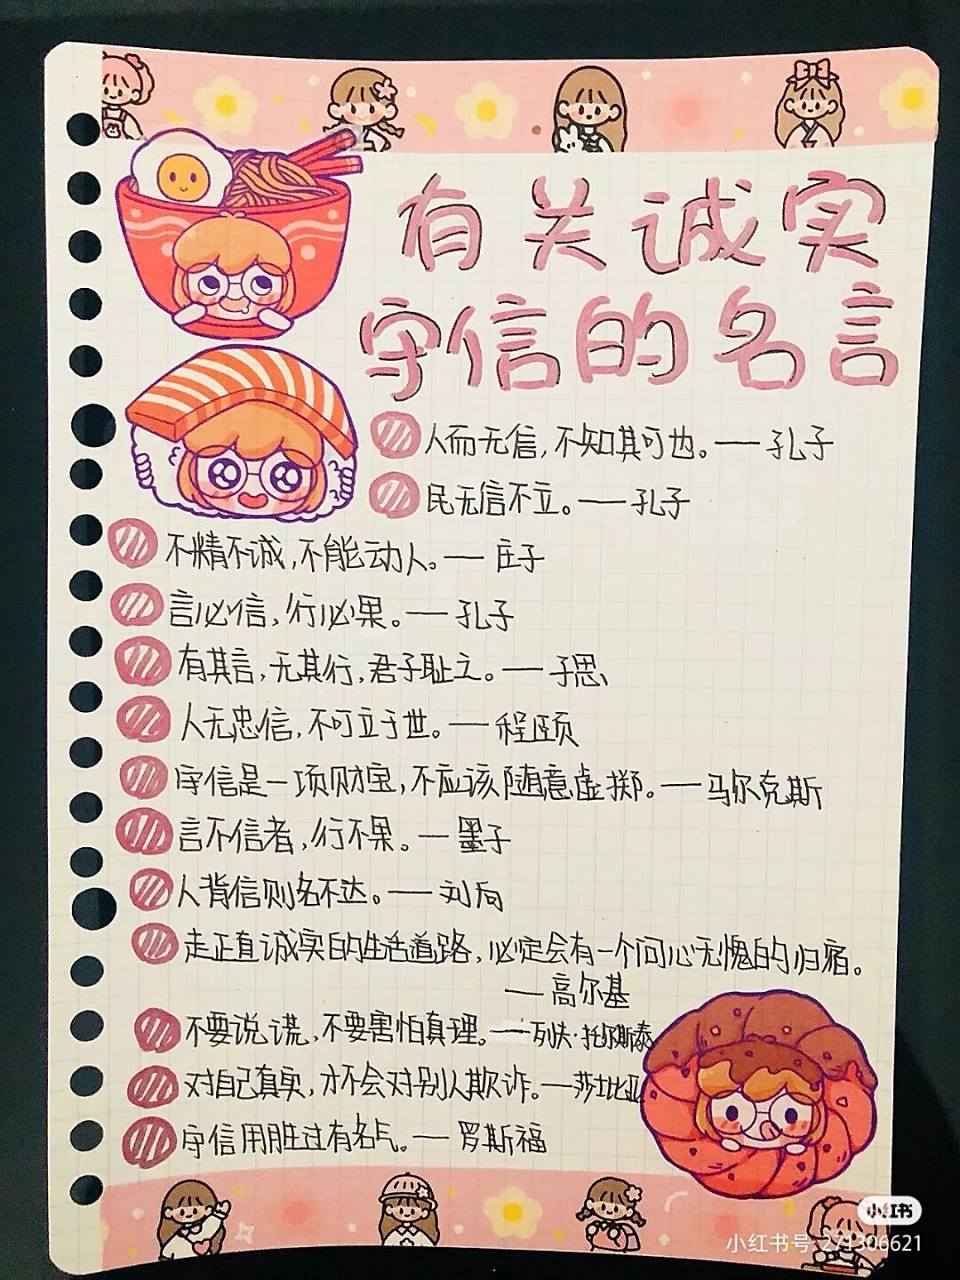 有关诚实
守信的名言
人而无信,不知其可也。——孔子
民无信不立。——孔子
不精不诚,不能动人。——庄子
言必信,行必果。——孔子
有其言,无其行,君子耻之。——子思
人无忠信,不可立于世。——程颐
守信是一项财宝,不应该随意虚掷。——马尔克斯
言不信者,行不果。——墨子
人背信则名不达。——刘向
走正直诚实的生活道路,必定会有一个问心无愧的归宿。
——高尔基
不要说谎,不要害怕真理。——列夫·托尔斯泰
对自己真实,才不会对别人欺诈。——莎士比亚
守信用胜过有名气。——罗斯福
小红书
小红书号 271306621